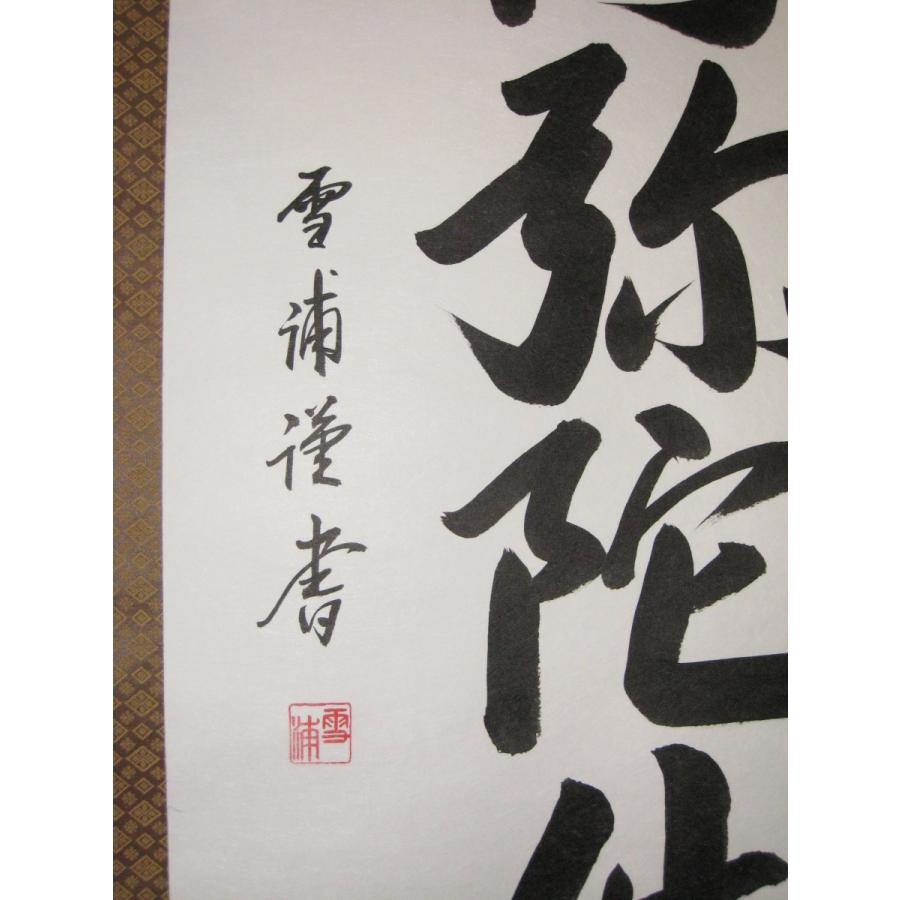 弥陀仏
雪浦謹書
雪浦